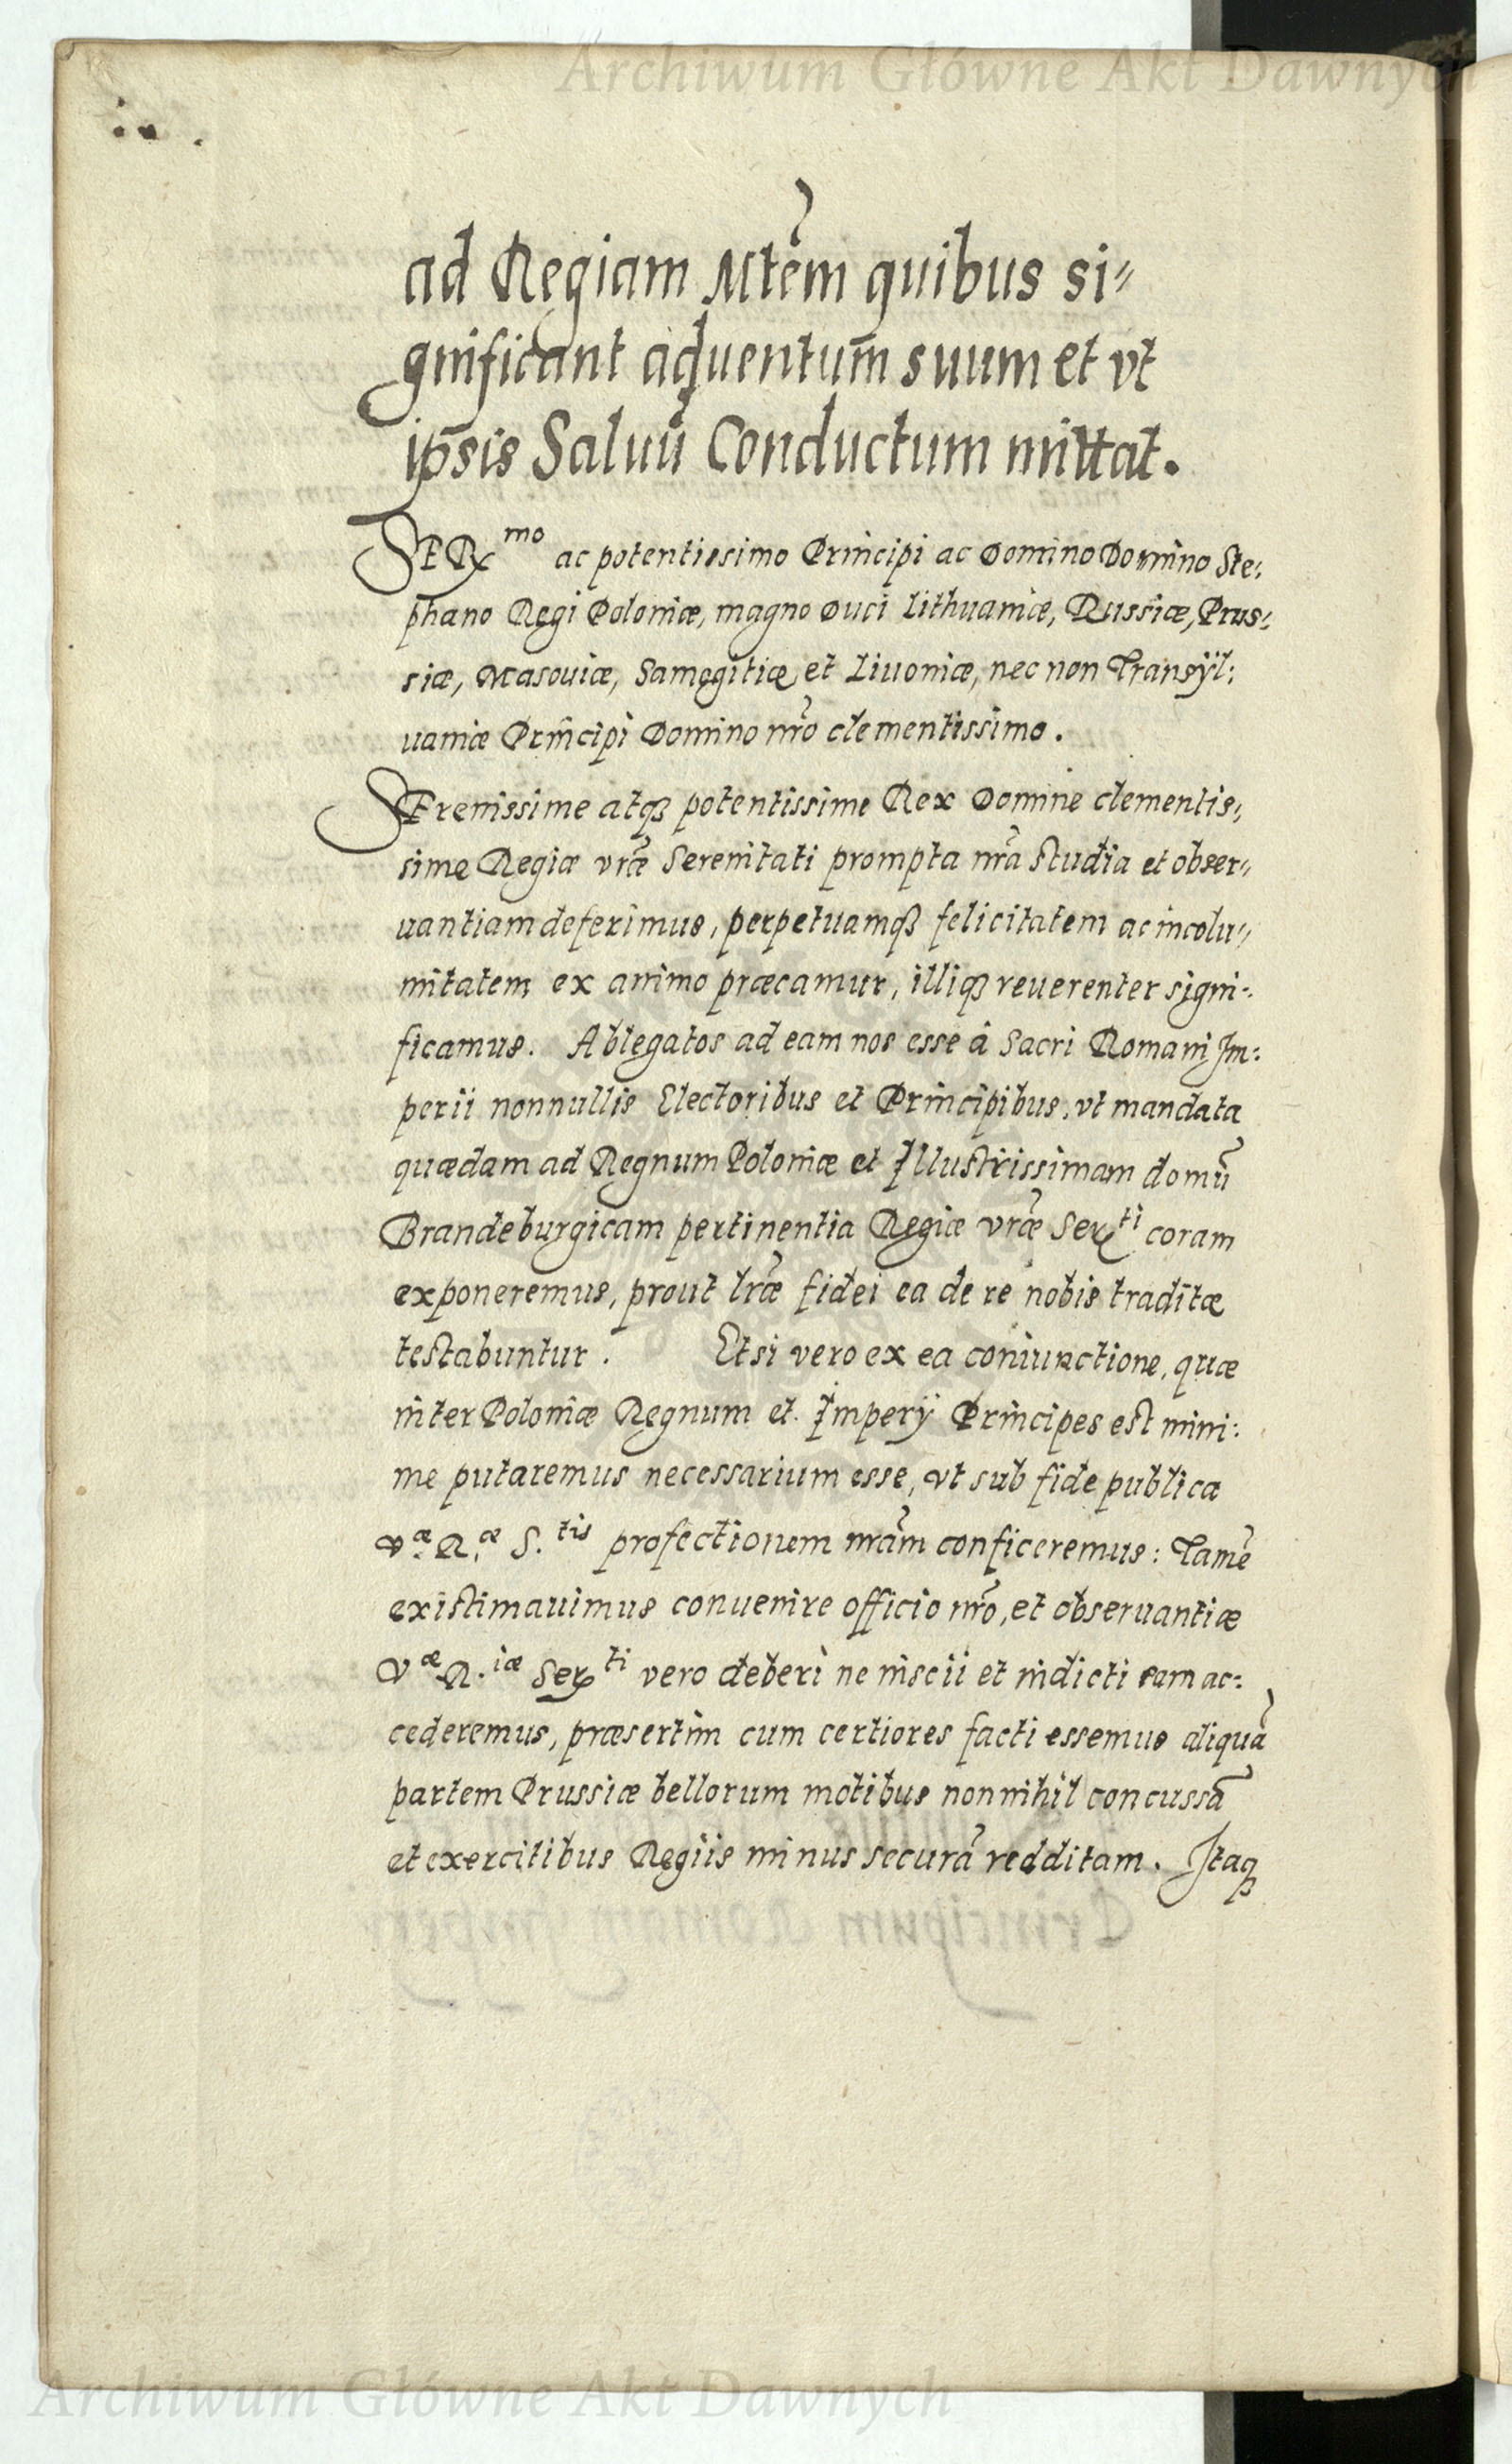 Archiwum Główne Akt Dawnych
ad Regiam Mtem̃ quibus si-
gnificant aduentum̃ suum et vt
ip̄sis Saluũ Conductum mittat.
SER mo ac potentissimo Principi ac Domino Domino Ste:
phano Regi Poloniæ, magno Duci Lithuaniæ, Russiæ, Prus:
siæ, Masouiæ, Samogitiæ et Liuoniæ, nec non Transÿl:
uaniæ Principi Domino nr̃o clementissimo.
SErenissime atqꝫ potentissime Rex Domine clementis:
sime Regiæ vræ̃ Serenitati prompta nr̃a studia et obser:
uantiam deferimus, perpetuamqꝫ felicitatem ac incolu:
mitatem ex animo præcamur, illiqꝫ reuerenter signi:
ficamus. Ablegatos ad eam nos esse à Sacri Romani Im:
perii nonnullis Electoribus et Principibus, vt mandata
quædam ad Regnum Poloniæ et Illustrissimam domũ
Brandeburgicam pertinentia Regiæ vræ̃ Ser ti coram
exponeremus, prout lræ̃ fidei ea de re nobis traditæ
testabuntur. Etsi vero ex ea coniunctione, quæ
inter Poloniæ Regnum et Imperÿ Principes est mini:
me putaremus necessarium esse, vt sub fide publica
V.æ R.æ S.tis profectionem nr̃am conficeremus: Tamẽ
existimauimus conuenire officio nr̃o, et obseruantiæ
V æ R.iæ Ser ti vero deberi ne inscii et indicti eam ac:
cederemus, præsertim cum certiores facti essemus aliquã
partem Prussiæ bellorum motibus nonnihil concussã
et exercitibus Regiis minus securã redditam. Itaqꝫ
Archiwum Główne Akt Dawnych